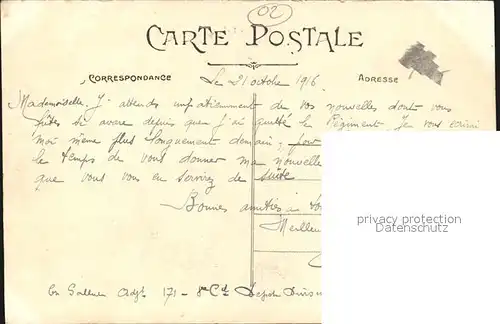 02
CARTE POSTALE
CORRESPONDANCE Le 21 octobre 1916 ADRESSE
Mademoiselle. J'attends impatiemment de vos nouvelles dont vous
êtes si avare depuis que j'ai quitté le Régiment. Je vous écrirai
moi même plus longuement demain; pour
le temps de vous donner ma nouvelle
que vous vous en serviez de suite
Bonnes amitiés à
Meilleu
privacy protection
disclaimer
Adjt 171 - 8e Cie Dépôt